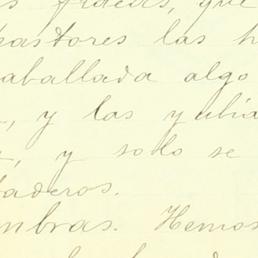 que
pastores las h
caballada algo
, y las yubia
, y solo se
baderos.
mbras. Hemos